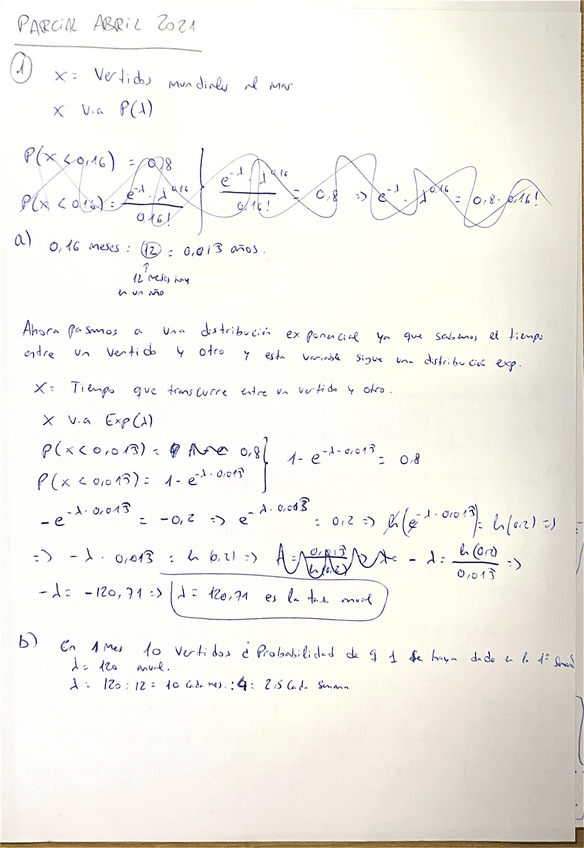 PARCIAL ABRIL 2021
1 X = Vertidos mundiales al mar
X v.a P(λ)
P(X < 0,16) = 0,8
P(X < 0,16) = e^-λ · λ^0,16 / 0,16! } e^-λ · λ^0,16 / 0,16! = 0,8 => e^-λ · λ^0,16 = 0,8 · 0,16!
a) 0,16 meses : 12 = 0,013̂ años.
↑
12 meses hay
en un año
Ahora pasamos a una distribución exponencial ya que sabemos el tiempo
entre un vertido y otro y esta variable sigue una distribución exp.
X = Tiempo que transcurre entre un vertido y otro.
X v.a Exp(λ)
P(X < 0,013̂) = 0,8
P(X < 0,013̂) = 1 - e^-λ · 0,013̂ } 1 - e^-λ · 0,013̂ = 0,8
-e^-λ · 0,013̂ = -0,2 => e^-λ · 0,013̂ = 0,2 => ln(e^-λ · 0,013̂) = ln(0,2) =>
=> -λ · 0,013̂ = ln(0,2) => -λ = ln(0,2) / 0,013̂ =>
-λ = -120,71 => λ = 120,71 es la tasa anual
b) En 1 mes 10 vertidos ¿Probabilidad de q 1 se haya dado en la 1ª semana
λ = 120 anual.
λ = 120 : 12 = 10 cada mes. : 4 = 2,5 cada semana